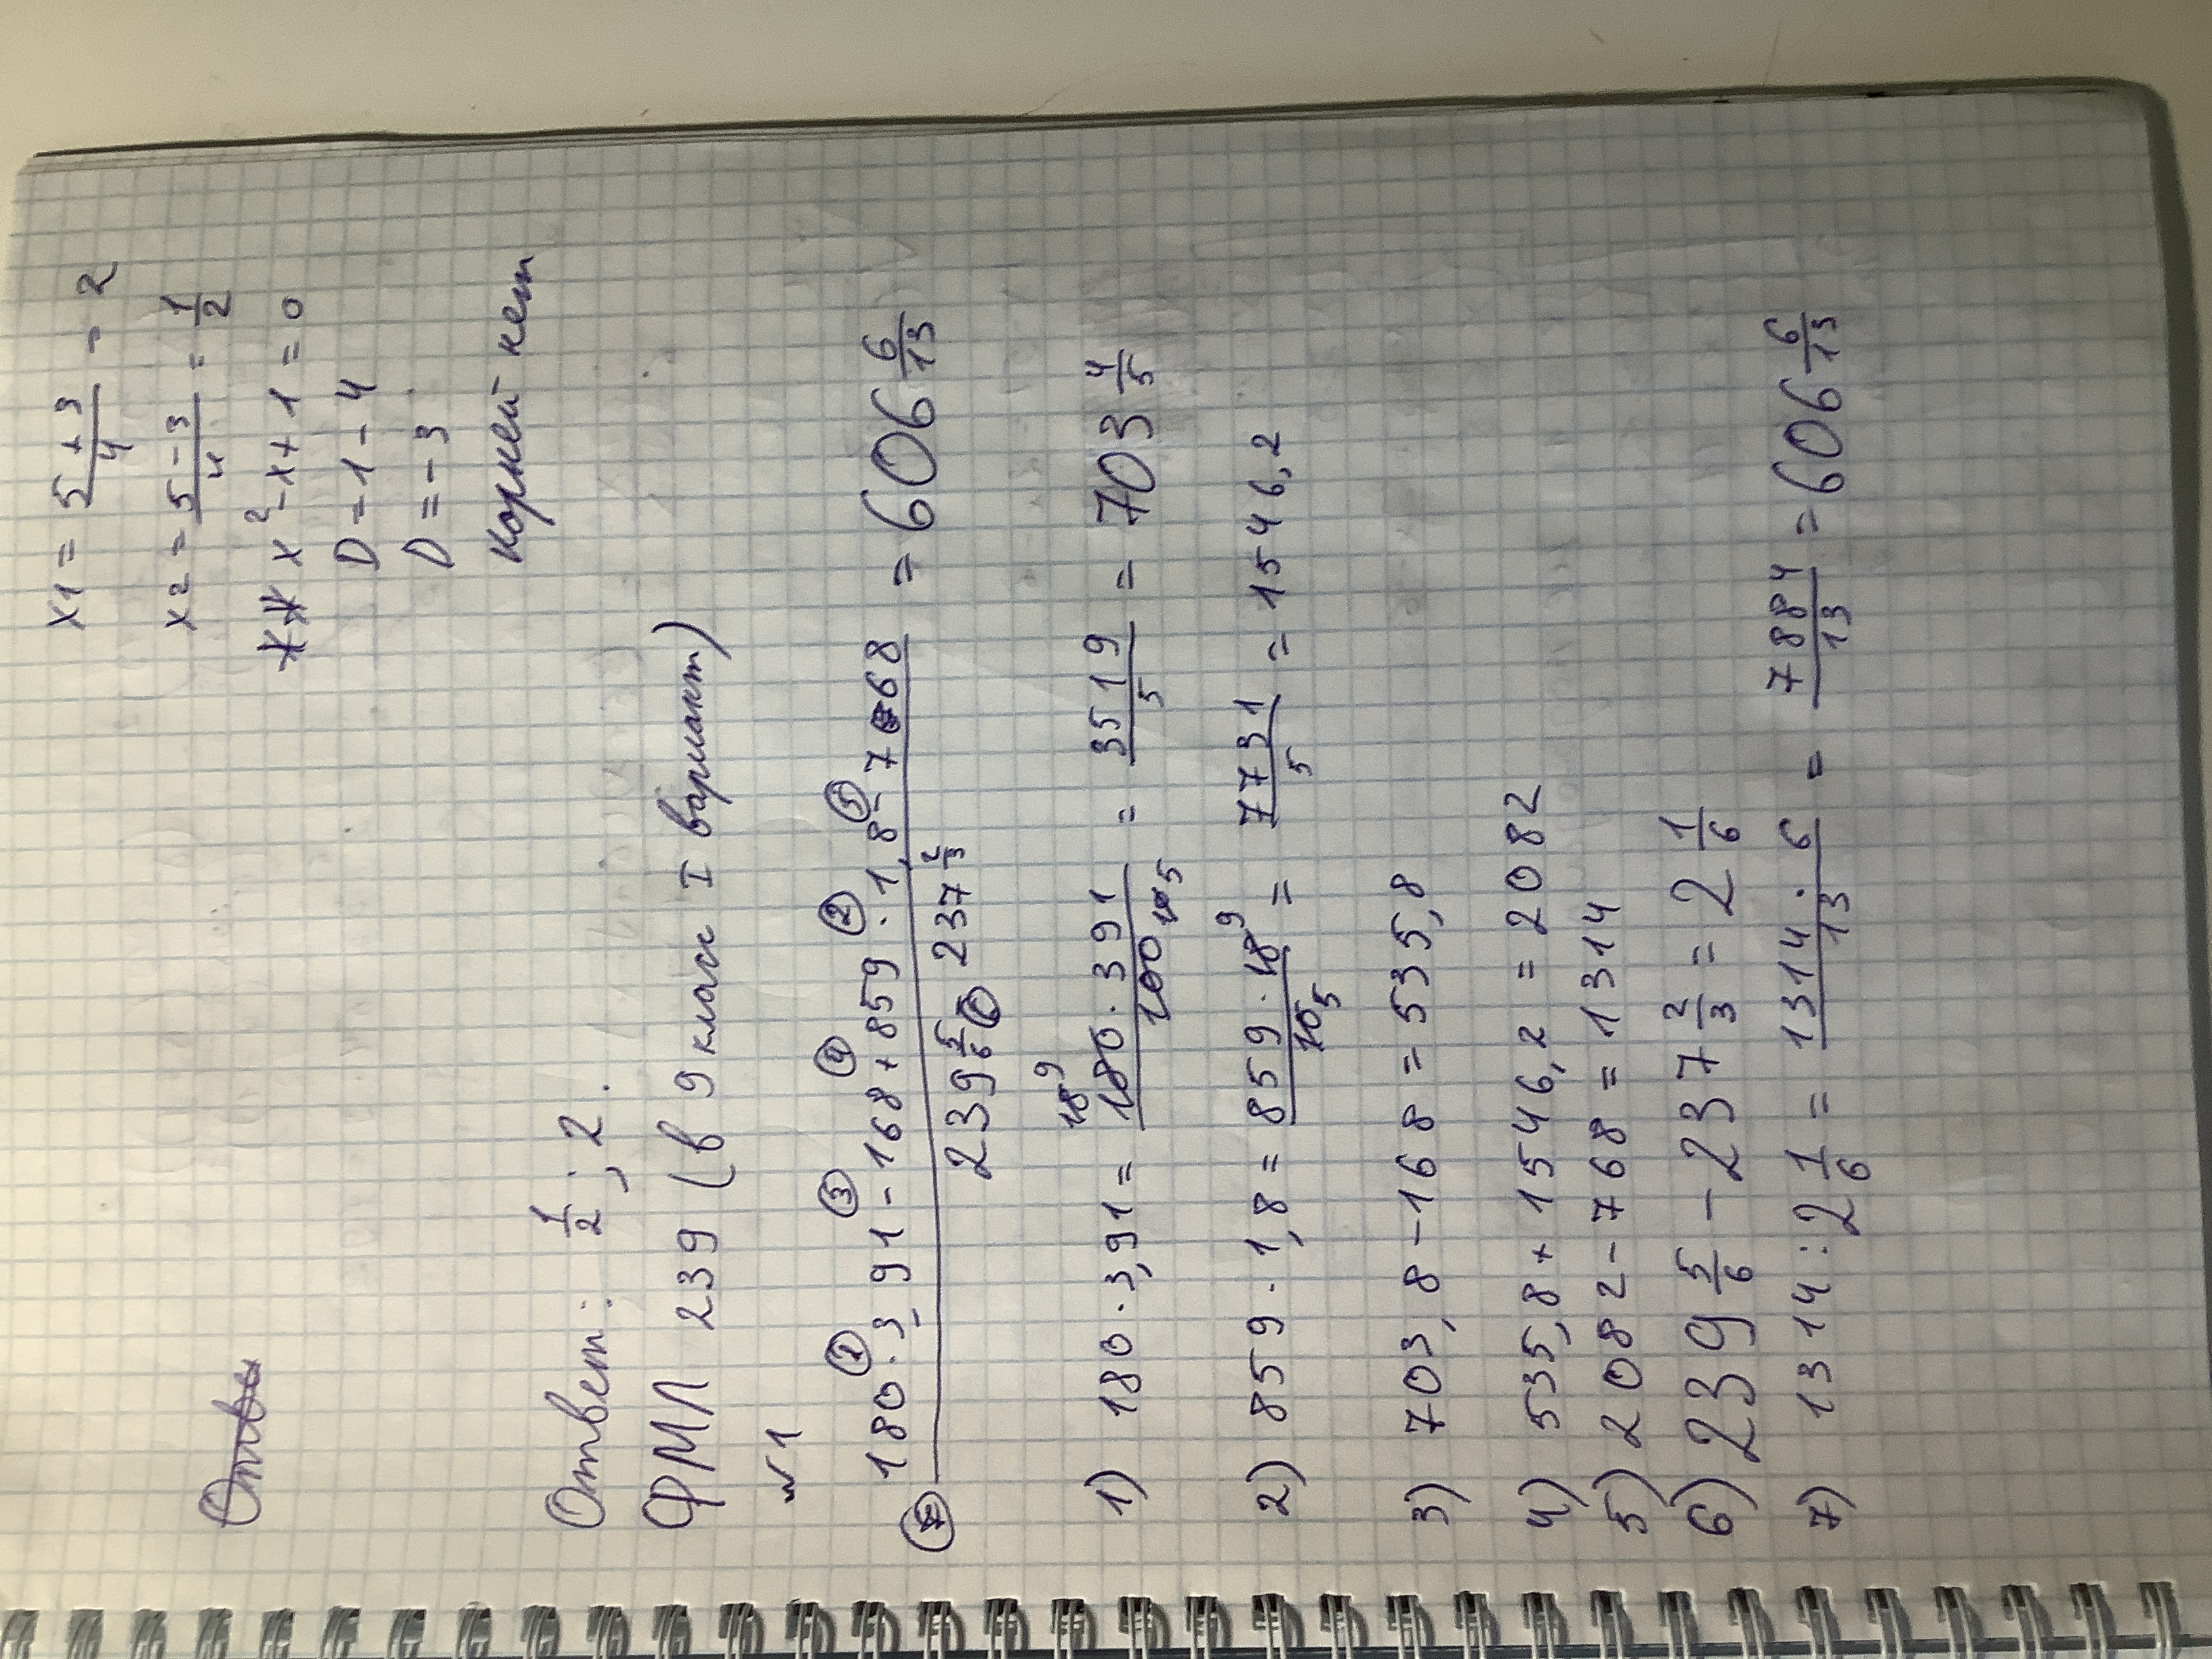 x1 = 5 + 3 / 4 = 2
x2 = 5 - 3 / 4 = 1/2
** x² - x + 1 = 0
D = 1 - 4
D = - 3
корней нет
Ответ: 1/2 ; 2.
ФМЛ 239 (в 9 класс I вариант)
№1
① ③ ④ ② ⑤
180 · 3,91 - 168 + 859 · 1,8 - 768 / 239 5/6 - 237 2/3 = 606 6/13
⑦ ⑥
1) 180 · 3,91 = 180 · 391 / 100 = 3519/5 = 703 4/5
18 9
10 5
2) 859 · 1,8 = 859 · 18 9 / 10 5 = 7731/5 = 1546,2
3) 703,8 - 168 = 535,8
4) 535,8 + 1546,2 = 2082
5) 2082 - 768 = 1314
6) 239 5/6 - 237 2/3 = 2 1/6
7) 1314 : 2 1/6 = 1314 · 6 / 13 = 7884/13 = 606 6/13